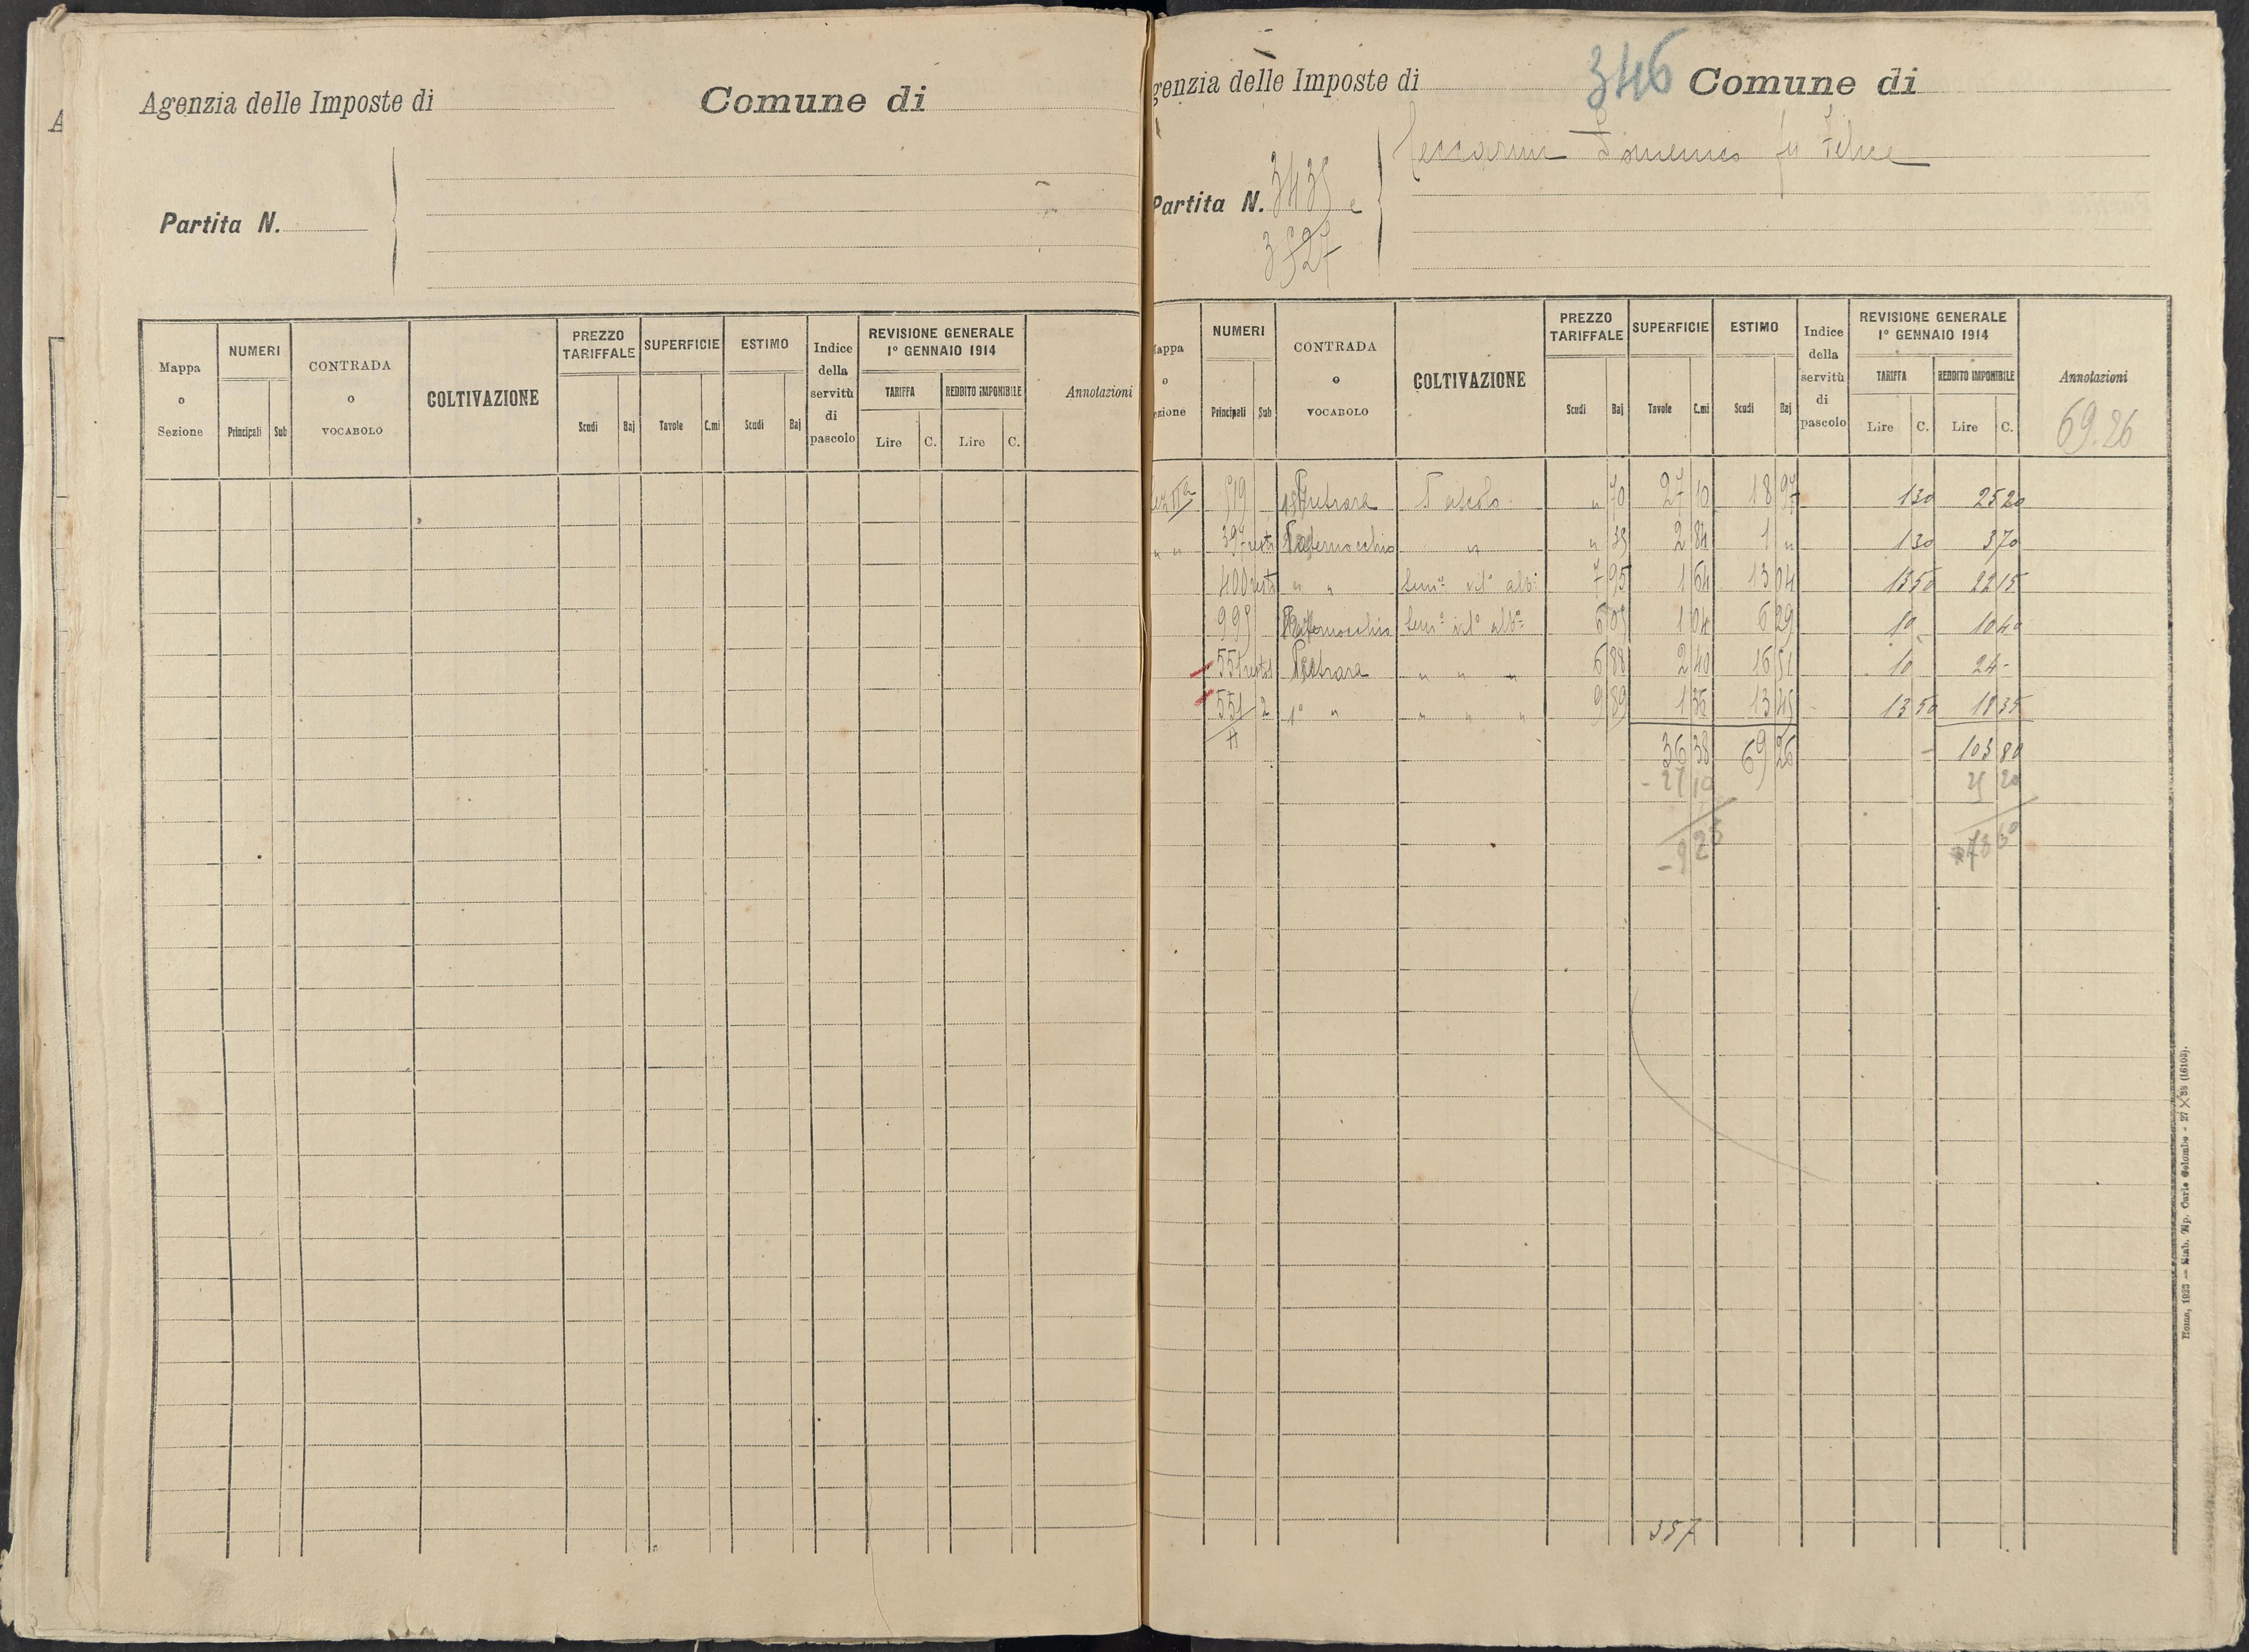 Agenzia delle Imposte di Comune di
Partita N.
Mappa o Sezione NUMERI Principali Sub CONTRADA o VOCABOLO COLTIVAZIONE PREZZO TARIFFALE Scudi Baj SUPERFICIE Tavole C.mi ESTIMO Scudi Baj Indice della servitù di pascolo REVISIONE GENERALE 1° GENNAIO 1914 TARIFFA Lire C. REDDITO IMPONIBILE Lire C. Annotazioni
genzia delle Imposte di 346 Comune di
Domenico fu Felice
Partita N. 3435 e
3527
Mappa o ezione NUMERI Principali Sub CONTRADA o VOCABOLO COLTIVAZIONE PREZZO TARIFFALE Scudi Baj SUPERFICIE Tavole C.mi ESTIMO Scudi Baj Indice della servitù di pascolo REVISIONE GENERALE 1° GENNAIO 1914 TARIFFA Lire C. REDDITO IMPONIBILE Lire C. Annotazioni
69.26
519 Pascolo " 70 27 10 18 97 1 30 25 20
" " 397 resto " " 35 2 84 1 " 1 30 3 70
400 resto " " Sem° vit° alb° 7 95 1 64 13 04 13 50 22 15
995 Sem° vit° alb° 6 05 1 04 6 29 10 10 40
551 resto Pietrara " " " 6 88 2 40 16 51 10 24 -
551 2 1° " " " " 9 89 1 36 13 45 13 50 18 35
A 36 38 69 26 - 103 80
- 27 10 25 20
- 9 28 78 60
357
Roma, 1923 — Stab. Tip. Carlo Colombo - 27 X 38 (16103).